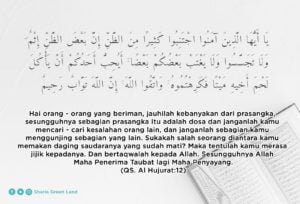 يَا أَيُّهَا الَّذِينَ آمَنُوا اجْتَنِبُوا كَثِيرًا مِنَ الظَّنِّ إِنَّ بَعْضَ الظَّنِّ إِثْمٌ ۖ
وَلَا تَجَسَّسُوا وَلَا يَغْتَبْ بَعْضُكُمْ بَعْضًا ۚ أَيُحِبُّ أَحَدُكُمْ أَنْ يَأْكُلَ
لَحْمَ أَخِيهِ مَيْتًا فَكَرِهْتُمُوهُ ۚ وَاتَّقُوا اللَّهَ ۚ إِنَّ اللَّهَ تَوَّابٌ رَحِيمٌ
Hai orang - orang yang beriman, jauhilah kebanyakan dari prasangka,
sesungguhnya sebagian prasangka itu adalah dosa dan janganlah kamu
mencari - cari kesalahan orang lain, dan janganlah sebagian kamu
menggunjing sebagian yang lain. Sukakah salah seorang diantara kamu
memakan daging saudaranya yang sudah mati? Maka tentulah kamu merasa
jijik kepadanya. Dan bertaqwalah kepada Allah. Sesungguhnya Allah
Maha Penerima Taubat lagi Maha Penyayang.
(QS. Al Hujurat:12)
Sharia Green Land